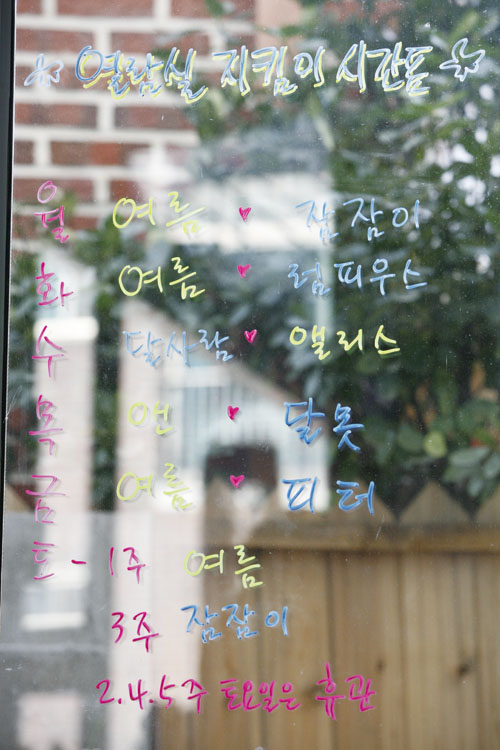 열람실 지킴이 시간표
월 여름 ♥ 잠잠이
화 여름 ♥ 럼피우스
수 달사람 ♥ 앨리스
목 앤 ♥ 달못
금 여름 ♥ 피터
토 - 1주 여름
3주 잠잠이
2.4.5주 토요일은 휴관